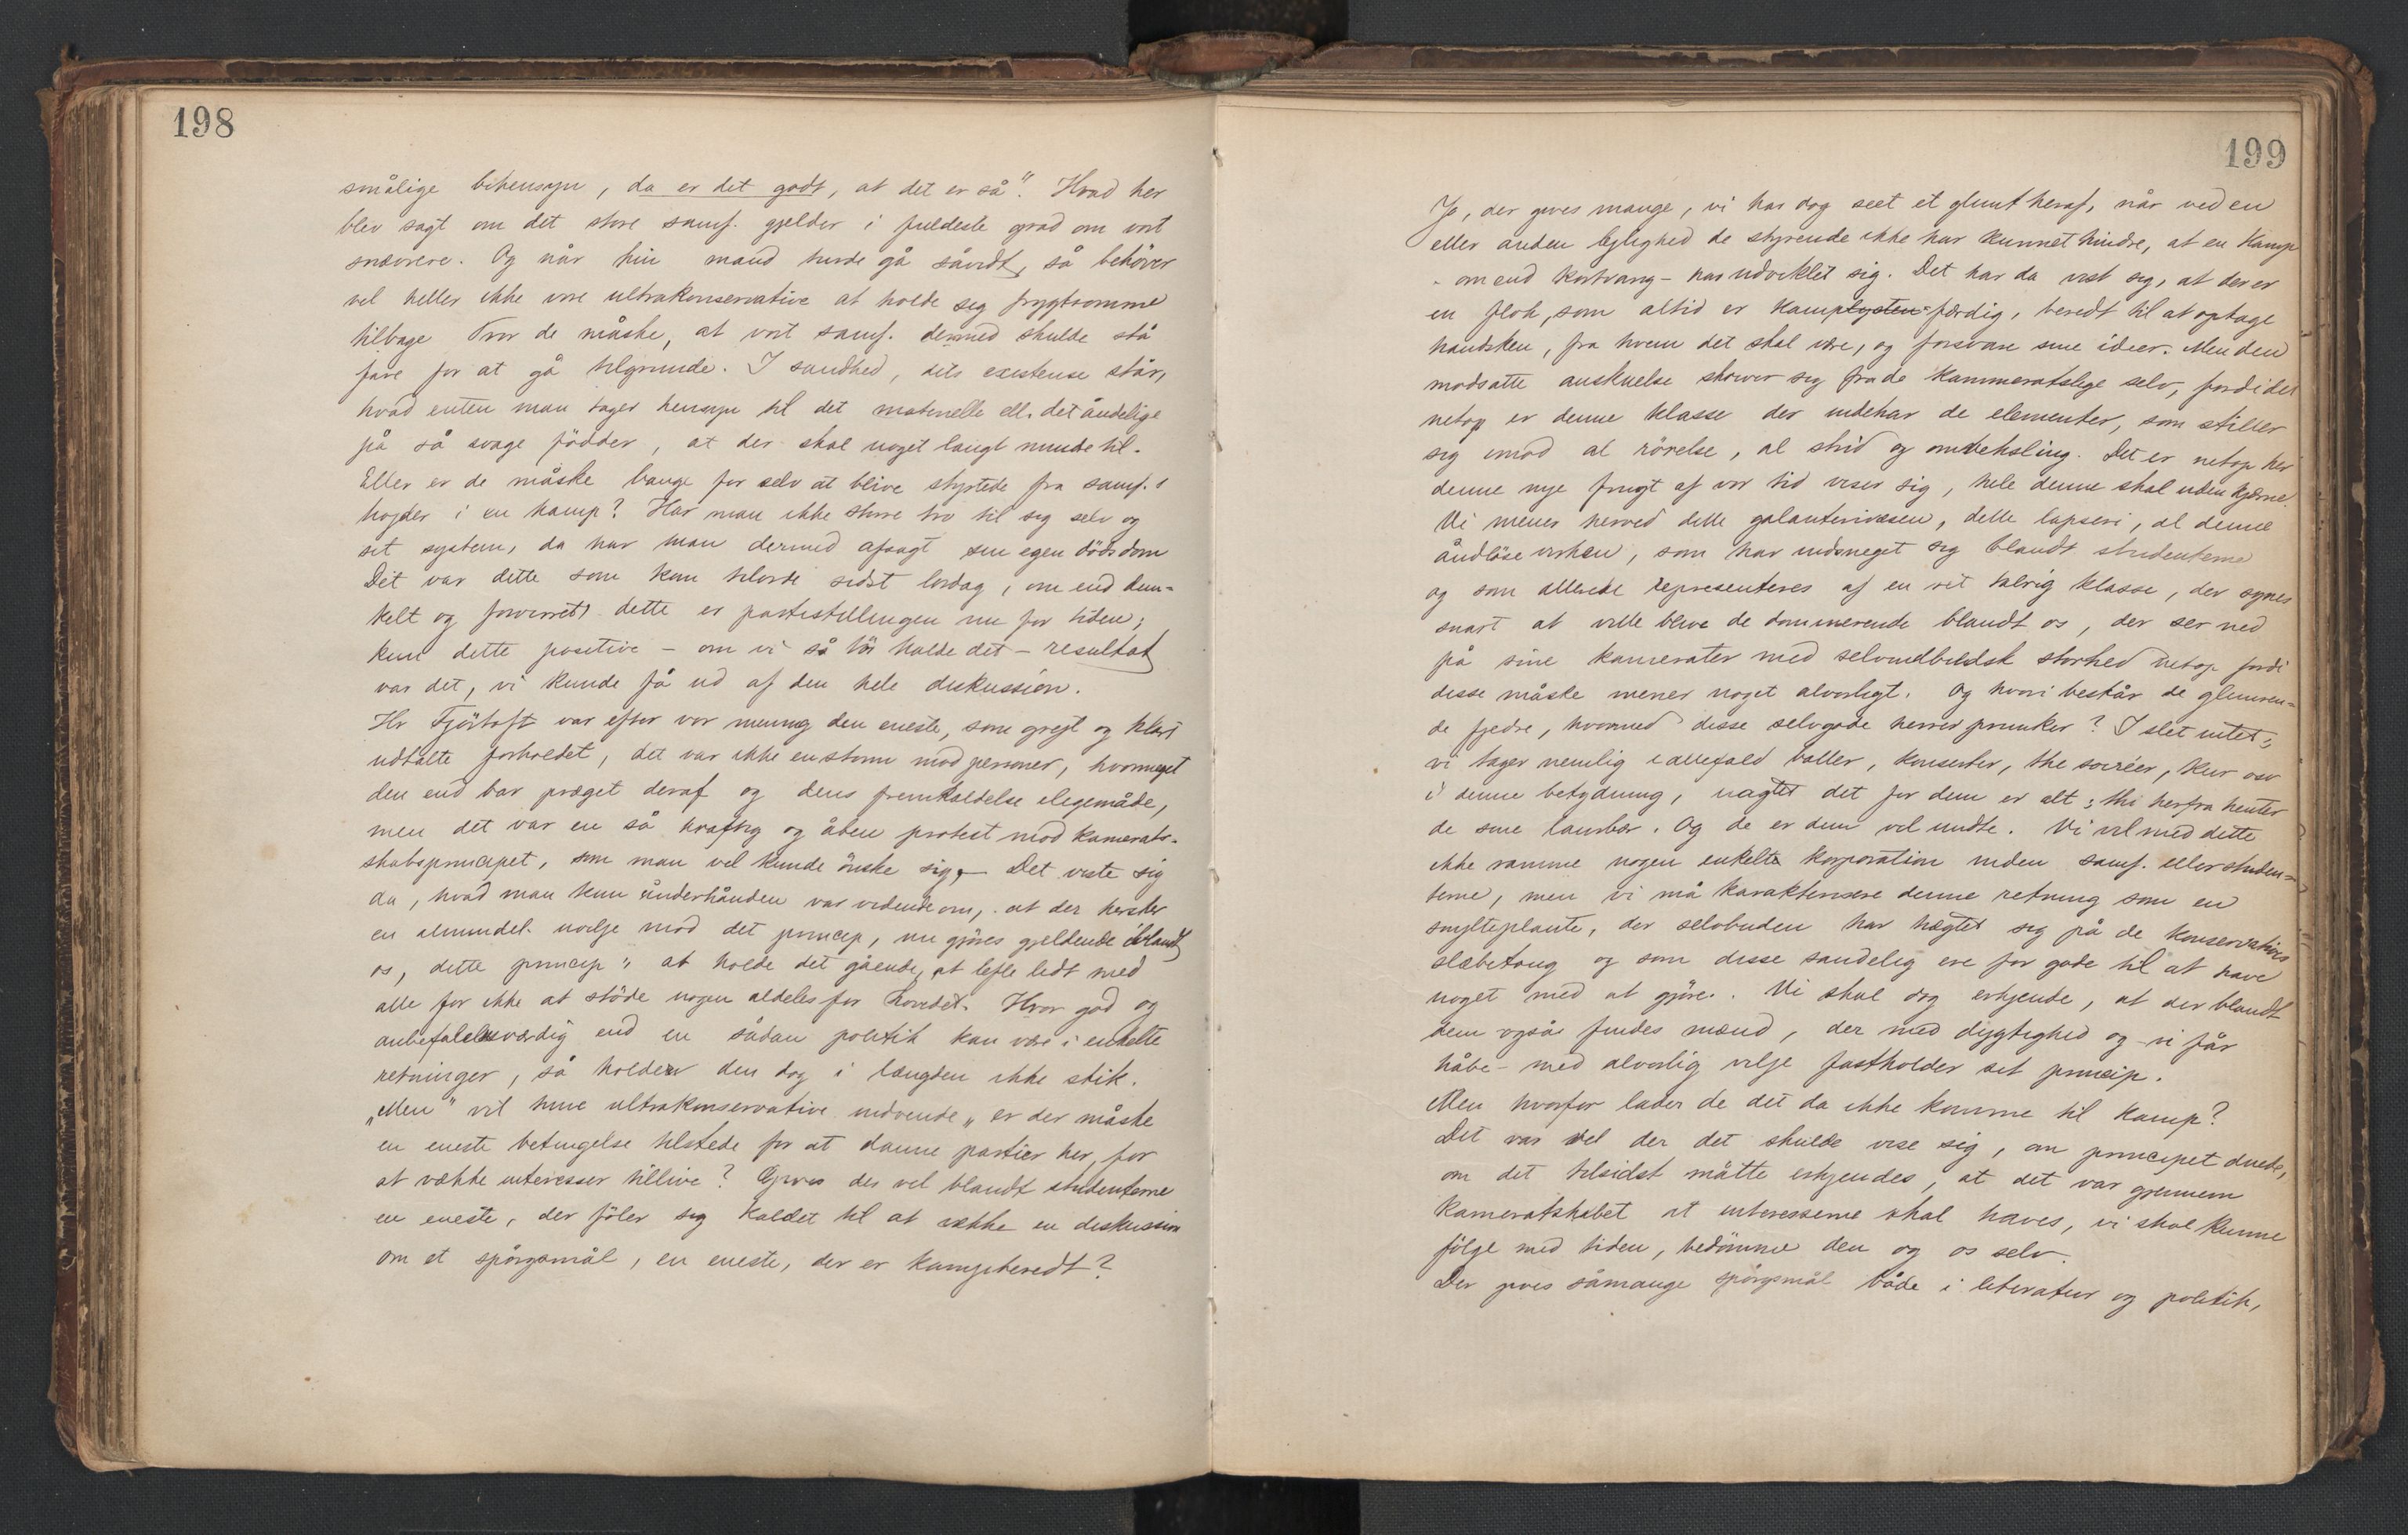 198
smålige bihensyn, da er det godt, at det er så". Hvad her
blev sagt om det store samf. gjelder i fuldeste grad om vort
snævrere. Og når hin mand turde gå såvidt, så behöver
vel heller ikke vore ultrakonservative at holde seg frygtsomme
tilbage Tror de måske, at vort samf. dermed skulde stå
fare for at gå tilgrunde. I sandhed, dets existense står,
hvad enten man tager hensyn til det materielle ell. det åndelige
på så svage födder, at der skal noget langt mindre til.
Eller er de måske bange for selv at blive styrtede fra samf.s
højder i en kamp? Har man ikke större tro til sig selv og
sit system, da har man dermed afsagt sin egen dödsdom
Det var dette som kom tilorde sidst lördag, om end dun-
kelt og forvirret, dette er partistillingen nu for tiden;
kun dette positive – om vi så tör kalde det – resultat
var det, vi kunde få ud af den hele diskussion.
Hr Fjörtoft var efter vor mening den eneste, som grejt og klart
udtalte forholdet, det var ikke en storm mod personer, hvormeget
den end bar præget deraf og dens fremkaldelse ligemåde,
men det var en så kraftig og åben protest mod kamerat-
skabsprincipet, som man vel kunde önske sig, – Det viste sig
da, hvad man kun underhånden var vidende om, at der hersker
en almindel. uvilje mod det princip, nu gjöres gjeldende iblandt
os, dette princip „ at holde det gående, at lefle lidt med
alle for ikke at stöde nogen aldeles for hovedet. Hvor god og
anbefalelsesværdig end en sådan politik kan være i enkelte
retninger, så holder den dog i længden ikke stik.
„Men" vil hine ultrakonservative indvende „ er der måske
en eneste betingelse tilstede for at danne partier her, for
at vække interesser tillive? Gives der vel blandt studenterne
en eneste, der föler sig kaldet til at vække en diskussion
om et spörgsmål, en eneste, der er kampberedt?
199
Jo, der gives mange, vi har dog seet et glimt heraf, når ved en
eller anden lejlighed de styrende ikke har kunnet hindre, at en kamp
– om end kortvarig – har udviklet sig. Det har da vist sig, at der er
en flok, som altid er kamplysten færdig, beredt til at optage
handsken, fra hvem det skal være, og forsvare sine ideer. Men den
modsatte anskuelse skriver sig fra de kammeratslige selv, fordi det
netop er denne klasse der indehar de elementer, som stiller
sig imod al rörelse, al strid og omveksling. Det er netop her
denne nye frugt af vor tid viser sig, hele denne skal uden kjærne.
Vi mener herved dette galanterivæsen, dette lapseri, al denne
åndlöse virken, som har indsneget sig blandt studenterne
og som allerede representeres af en ret talrig klasse, der synes
snart at ville blive de dominerende blandt os, der ser ned
på sine kamerater med selvindbildsk storhed netop fordi
disse måske mener noget alvorligt. Og hvori består de glimren-
de fjedre, hvormed disse selvgode herrer prunker? I slet intet;
vi tager nemlig i allefald baller, konserter, the soiréer, kur osv
i denne betydning, uagtet det for dem er alt; thi herfra henter
de sine laurbær. Og de er dem vel undte. Vi vil med dette
ikke ramme nogen enkelte korporation inden samf. eller studen-
terne, men vi må karakterisere denne retning som en
snylteplante, der selvbuden har hægtet sig på de konservatives
slæbetoug og som disse sandelig ere for gode til at have
noget med at gjöre. Vi skal dog erkjende, at der blandt
dem også findes mænd, der med dygtighed og – vi får
håbe – med alvorlig vilje fastholder sit princip.
Men hvorfor lader de det da ikke komme til kamp?
Det var vel der det skulde vise sig, om principet duede,
om det tilsidst måtte erkjendes, at det var gjennem
kameratskabet at interesserne skal haves, vi skal kunne
fölge med tiden, bedömme den og os selv.
Der gives såmange spörgsmål både i literatur og politik,